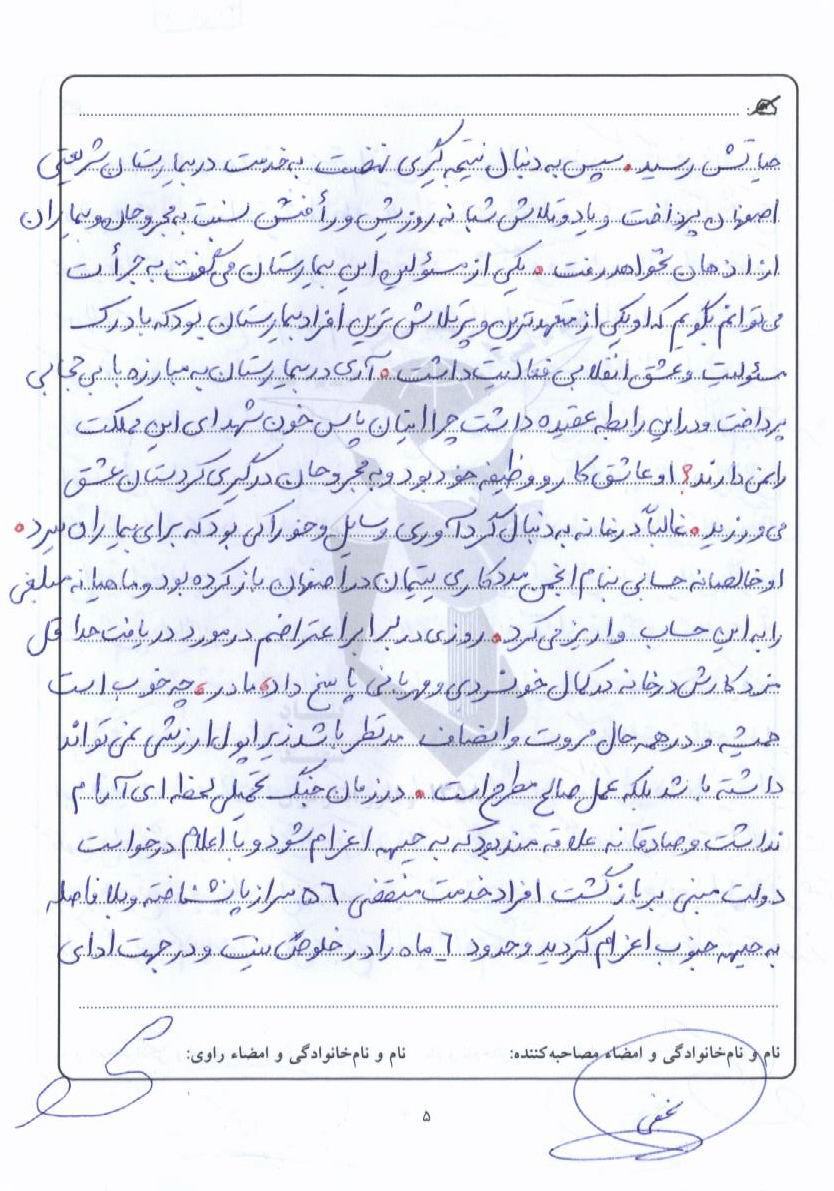 حیاتش رسید. سپس به دنبال نتیجه گیری نهضت به خدمت در بیمارستان شریعتی
اصفهان پرداخت و یاد و تلاش شبانه روزیش و رأفتش نسبت به مجروحان و بیماران
از اذهان نخواهد رفت. یکی از مسئولین این بیمارستان می گفت به جرأت
می توانم بگویم که او یکی از متعهدترین و پرتلاش ترین افراد بیمارستان بود که با درک
مسئولیت و عشق انقلابی فعالیت داشت. آری در بیمارستان به مبارزه با بی حجابی
پرداخت و در این رابطه عقیده داشت چرا اینان پاس خون شهدای این مملکت
را نمی دارند؟ او عاشق کار و وظیفه خود بود و به مجروحان درگیری کردستان عشق
می ورزید. غالباً در خانه به دنبال گردآوری وسایل و خوراکی بود که برای بیماران ببرد.
او خالصانه حسابی بنام انجمن مددکاری یتیمان در اصفهان باز کرده بود و ماهیانه مبلغی
را به این حساب واریز می کرد. روزی در برابر اعتراضم در مورد دریافت حداقل
مزد کارش در خانه در کمال خونسردی و مهربانی پاسخ داد، مادر، چه خوب است
همیشه و در همه حال مروت و انصاف مدنظر باشد زیرا پول ارزشی نمی تواند
داشته باشد بلکه عمل صالح مطرح است. در زمان جنگ تحمیلی لحظه ای آرام
نداشت و صادقانه علاقه مند بود که به جبهه اعزام شود و با اعلام درخواست
دولت مبنی بر بازگشت افراد خدمت منقضی ۵۶ سر از پا نشناخته و بلافاصله
به جبهه جنوب اعزام گردید و حدود ۶ ماه را در خلوص نیت و در جهت ادای
نام و نام‌خانوادگی و امضاء مصاحبه‌کننده: نام و نام‌خانوادگی و امضاء راوی:
۵